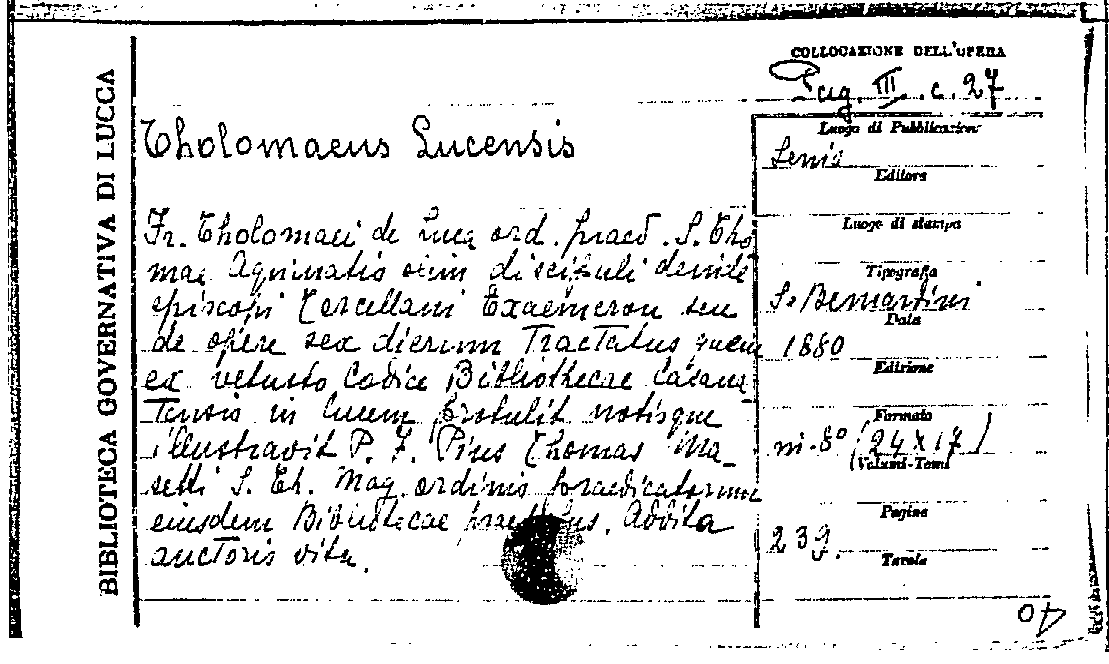 BIBLIOTECA GOVERNATIVA DI LUCCA
COLLOCAZIONE DELL'OPERA
III. c. 27
Tholomaeus Lucensis
Luogo di Pubblicazione
Senis
Editore
Luogo di stampa
Tipografia
S. Bernardini
Data
1880
Edizione
Formato
in-8° (24x17)
Volumi-Tomi
Pagine
239.
Tavole
Fr. Tholomaei de Luca ord. praed. S. Tho
mae Aquinatis olim discipuli deinde
episcopi Torcellani Exaemeron seu
de opere sex dierum Tractatus quem
ex vetusto Codice Bibliothecae Casana
tensis in lucem protulit notisque
illustravit P. F. Pius Thomas Ma_
setti S. Th. Mag. ordinis praedicatorum
eiusdem Bibliotecae praefectus. Addita
auctoris vita.